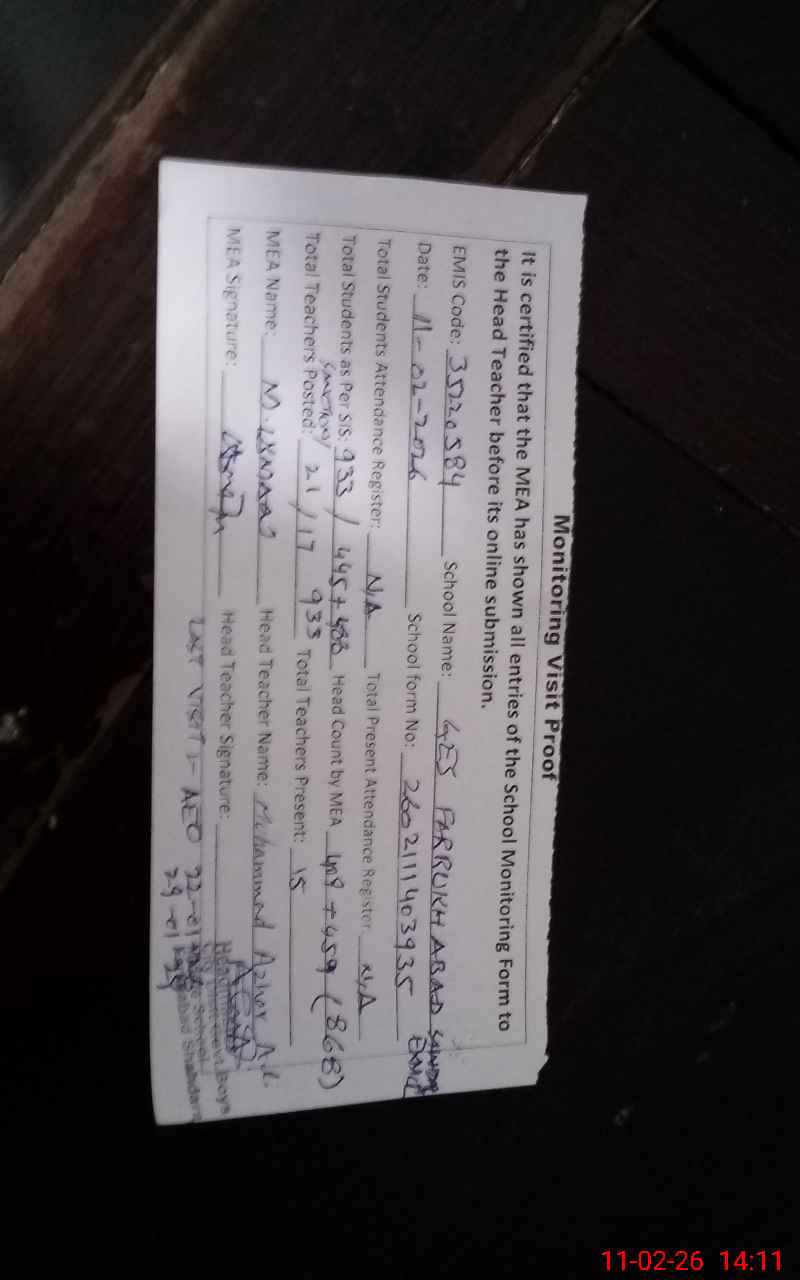 Monitoring Visit Proof
It is certified that the MEA has shown all entries of the School Monitoring Form to
the Head Teacher before its online submission.
EMIS Code: 35220584 School Name: GES FARRUKH ABAD
Date: 11-02-2026 School form No: 2602111403935
Total Students Attendance Register: N/A Total Present Attendance Register N/A
Total Students as Per SIS: 933 / 445+488 Head Count by MEA 409+459 (868)
Total Teachers Posted: 21/17 933 Total Teachers Present: 15
MEA Name: M. Head Teacher Name: Muhammad Azhar Ali
MEA Signature: Head Teacher Signature:
LAST VISIT :- AEO 22-01
29-01
Boys
School
Shahdara
11-02-26 14:11